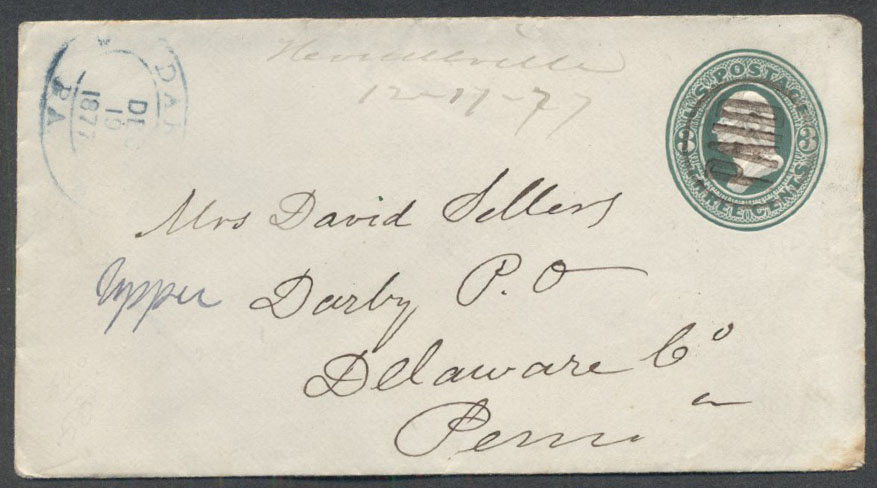 12-17-77
DAR
DEC
19
1877
PA
U.S. POSTAGE
3 3
THREE CENTS
PAID
Mrs David Sellers
Upper Darby P.O
Delaware Co
Penna